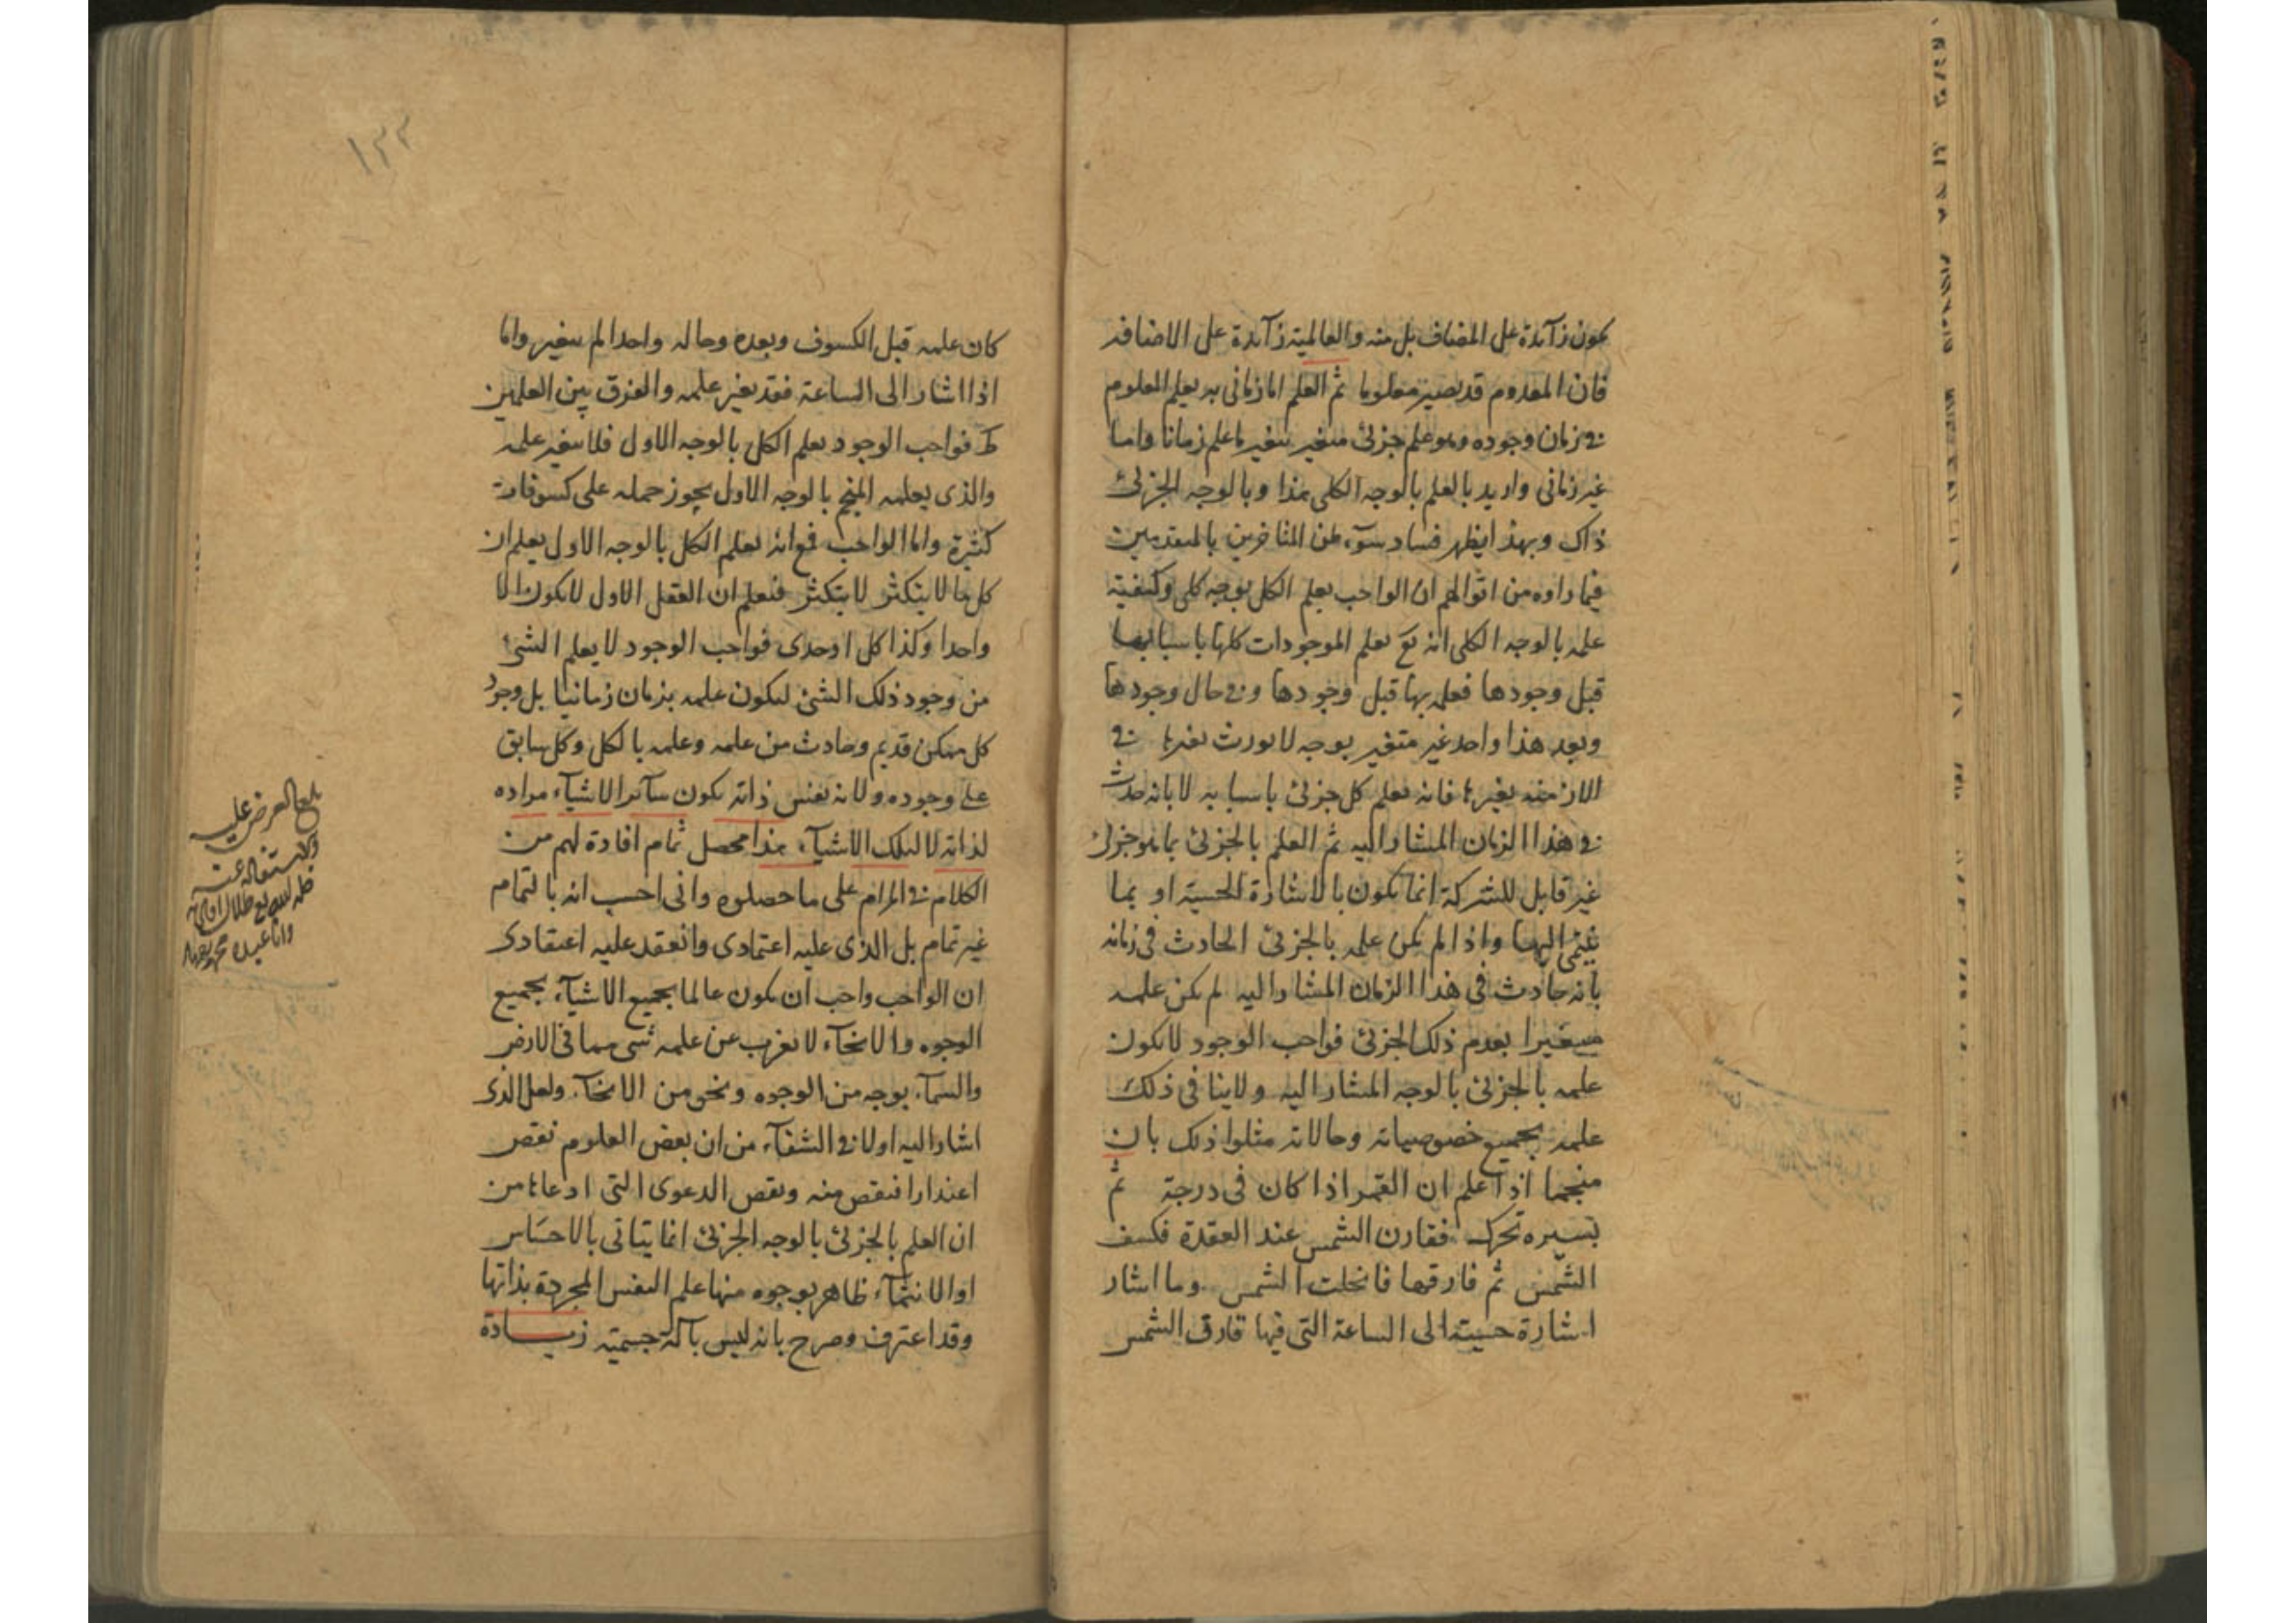 يكون زآئدة على المضاف بل منه والعالمية زآئدة على الاضافه
فان المعدوم قد يصير معلوما ثم العلم اما زمانى به يعلم المعلوم
فى زمان وجوده وهو علم جزئى متغير بتغير ما علم زمانا واما
غير زمانى واريد بالعلم بالوجه الكلى هذا وبالوجه الجزئى
ذاك وبهذا يظهر فساد سوٓء ظن المتأخرين بالمتقدمين
فيما راوه من اقوالهم ان الواجب يعلم الكل بوجه كلى وكيفية
علمه بالوجه الكلى انه تع يعلم الموجودات كلها باسبابها
قبل وجودها فعلمه بها قبل وجودها وفى حال وجودها
وبعد هذا واحد غير متغير بوجه لا يورث تغيرها فى
الازمنه تغيرها فانه يعلم كل جزئى باسبابه لا بانه حدث
فى هذا الزمان المشار اليه ثم العلم بالجزئى بما هو جزئى
غير قابل للشركة انما يكون بالاشارة الحسية او بما
ينتمى اليها واذا لم يكن علمه بالجزئى الحادث فى زمانه
بانه حادث فى هذا الزمان المشار اليه لم يكن علمه
متغيرا بعدم ذلك الجزئى فواجب الوجود لا يكون
علمه بالجزئى بالوجه المشار اليه ولا ينافى ذلك
علمه بجميع خصوصياته وحالاته مثلوا ذلك بان
منجما اذا علم ان القمر اذا كان فى درجة ثم
بسيره تحرك فقارن الشمس عند العقدة فكسف
الشمس ثم فارقها فانجلت الشمس وما اشار
اشارة حسية الى الساعة التى فيها قارق الشمس
١٣٣
كان علمه قبل الكسوف وبعده وحاله واحدا لم يتغير واما
اذا اشار الى الساعة فقد تغير علمه والفرق بين العلمين
ظ فواجب الوجود يعلم الكل بالوجه الاول فلا يتغير علمه
والذى يعلمه المنجم بالوجه الاول يجوز حمله على كسوفات
كثيرة واما الواجب فمع انه يعلم الكل بالوجه الاول يعلم ان
كل ما لا يتكثر لا يتكثر فيعلم ان العقل الاول لا يكون الا
واحدا وكذا كل اوحدى فواجب الوجود لا يعلم الشئ
من وجود ذلك الشئ ليكون علمه بزمان زمانيا بل وجود
كل ممكن قديم وحادث من علمه وعلمه بالكل وكل سابق
على وجوده ولانه بنفس ذاته يكون سآئر الاشيآء مراده
لذاته لا لتلك الاشيآء هذا محصل تمام افادة لهم من
الكلام فى المرام على ما حصلوه وانى احسب انه بالتمام
غير تمام بل الذى عليه اعتمادى وانعقد عليه اعتقادى
ان الواجب واجب ان يكون عالما بجميع الاشيآء بجميع
الوجوه والانحآء لا يعزب عن علمه شى مما فى الارض
والسمآء بوجه من الوجوه ونحو من الانحآء ولعل الذى
اشار اليه اولا فى الشفآء من ان بعض العلوم نقص
اعتذارا فنقص منه ونقص الدعوى التى ادعاها من
ان العلم بالجزئى بالوجه الجزئى انما يتاتى بالاحساس
او الانتمآء ظاهر بوجوه منها علم النفس المجردة بذاتها
وقد اعترف وصرح بانه ليس بآلة جسمية زيادة
بلغ العرض عليه